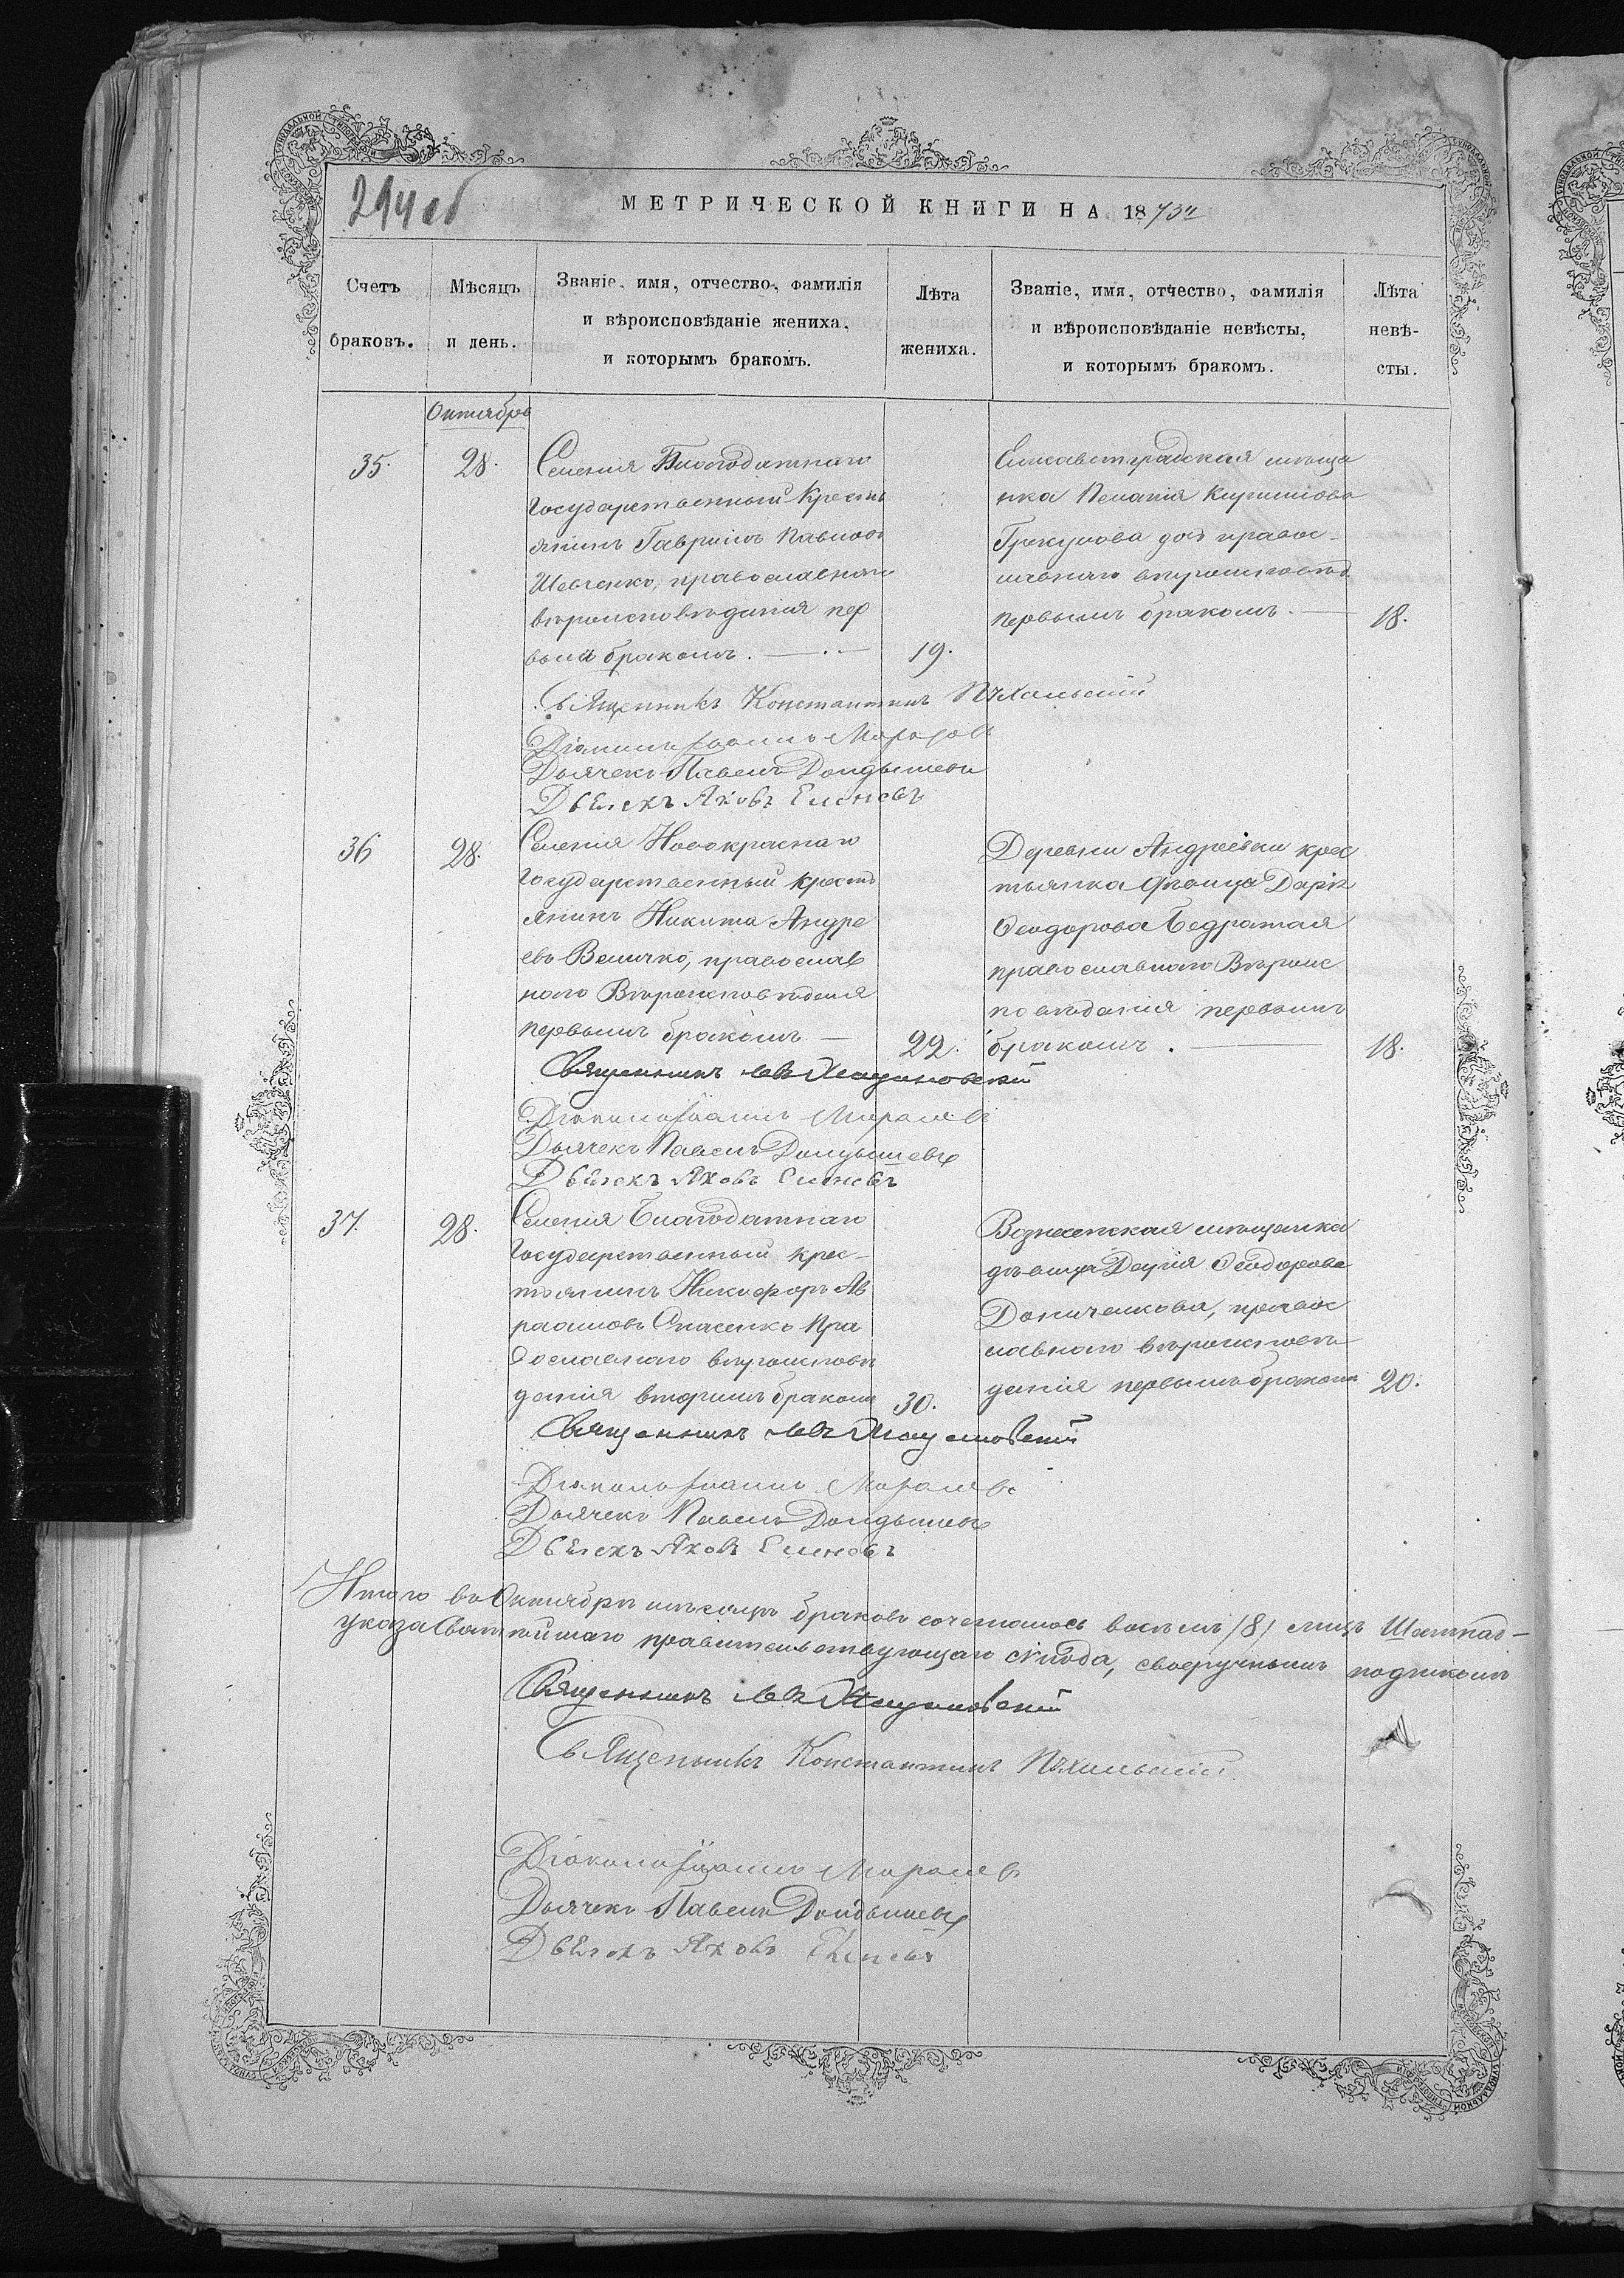 294 об
МЕТРИЧЕСКОЙ КНИГИ НА 1873
Счетъ браковъ.
Мѣсяцъ и день.
Званіе, имя, отчество, фамилія
и вѣроисповѣданіе жениха,
и которымъ бракомъ.
Лѣта
жениха.
Званіе, имя, отчество, фамилія
и вѣроисповѣданіе невѣсты,
и которымъ бракомъ.
Лѣта
невѣ-
сты.
Октябрь
35.
28.
Селенія Благодатнаго
государственный кресть
янинъ Гавріилъ Павловъ
Шевченко, православнаго
вѣроисповѣданія пер
вымъ бракомъ.
19.
Елисаветградская мѣща
нка Пелагія Кирилова
православнаго вѣроисповѣд
первымъ бракомъ.
18.
Священникъ Константинъ
Діаконъ Іоаннъ
Дьячекъ Павелъ
Дьячекъ Яковъ
36
28.
Селенія Новокраснаго
государственный кресть
янинъ Никита Андре
евъ Величко, православ
наго Вѣроисповѣданія
первымъ бракомъ
22.
Деревни Андреевки крес
тьянка дѣвица Дарія
Ѳеодорова
православнаго Вѣроис
повѣданія первымъ
бракомъ.
18.
Священникъ Левъ
Діаконъ Іоаннъ
Дьячекъ Павелъ
Дьячекъ Яковъ
37.
28.
Селенія Благодатнаго
государственный крес-
тьянинъ Никифоръ Ав
раамовъ Спасенко Пра
вославнаго вѣроисповѣ
данія вторымъ бракомъ
30.
Вознесенская мѣщанка
дѣвица Ѳеодорова
Даниченкова, правос
лавнаго вѣроисповѣ
данія первымъ бракомъ
20.
Священникъ Левъ
Діаконъ Іоаннъ
Дьячекъ Павелъ
Дьячекъ Яковъ
Итого въ Октябрѣ мѣсяцѣ браковъ сочеталось восемь /8/
указа Святѣйшаго правительствующаго сѵнода, своеручнымъ подписомъ
Священникъ Левъ
Священникъ Константинъ
Діаконъ Іоаннъ
Дьячекъ Павелъ
Дьячекъ Яковъ